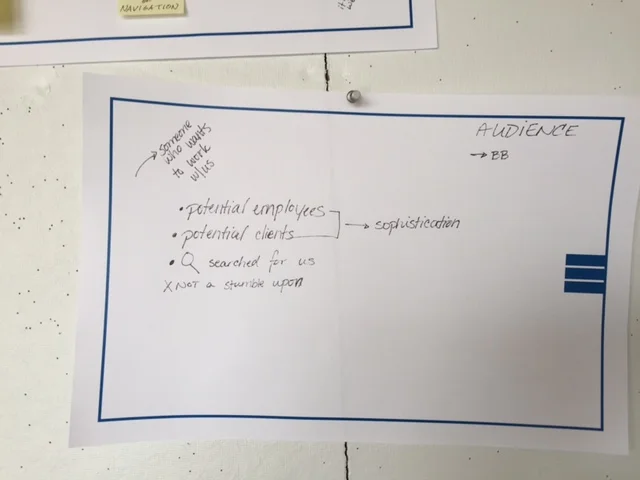 NAVIGATION
AUDIENCE
→ BB
→ someone
who wants
to work
w/us
• potential employees
• potential clients → sophistication
• searched for us
X NOT a stumble upon